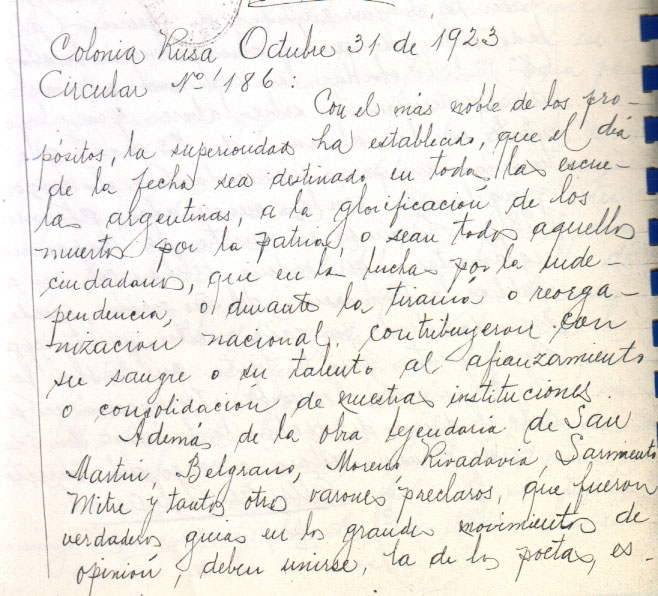 Colonia Rusa Octubre 31 de 1923
Circular Nº 186:
Con el más noble de los pro-
pósitos, la superioridad ha establecido, que el día
de la fecha sea destinado en todas las escue-
las argentinas, a la glorificación de los
muertos por la patria, o sean todos aquellos
ciudadanos, que en la lucha por la inde-
pendencia, o durante la tiranía o reorga-
nización nacional, contribuyeron con
su sangre o su talento al afianzamiento
o consolidación de nuestras instituciones.
Además de la obra legendaria de San
Martín, Belgrano, Moreno, Rivadavia, Sarmiento
Mitre y tantos otros varones preclaros, que fueron
verdaderos guias en los grandes movimientos de
opinión, deben unirse, la de los poetas, es-